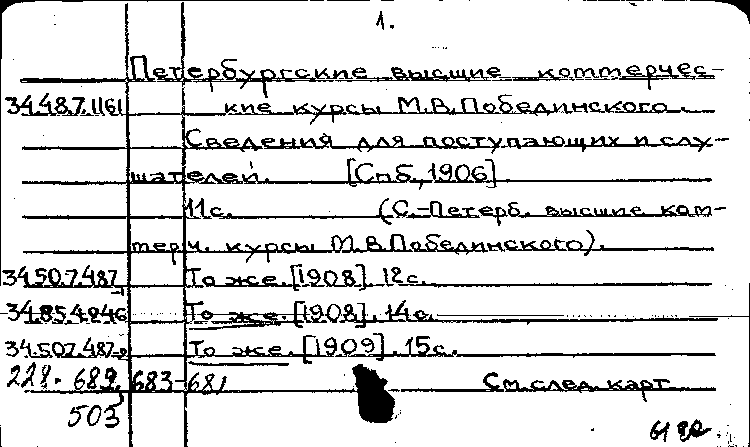 1.
Петербургские высшие коммерчес-
34.48.7.1161 кие курсы М.В.Побединского.
Сведения для поступающих и слу-
шателей. [Спб., 1906].
11с. (С.-Петерб. высшие ком-
мерч. курсы М.В.Побединского).
34.50.7.487 То же. [1908]. 12с.
34.85.4.246 То же. [1908]. 14с.
34.507.487 То же. [1909]. 15с.
228. 682, 683-681 См.след.карт
503